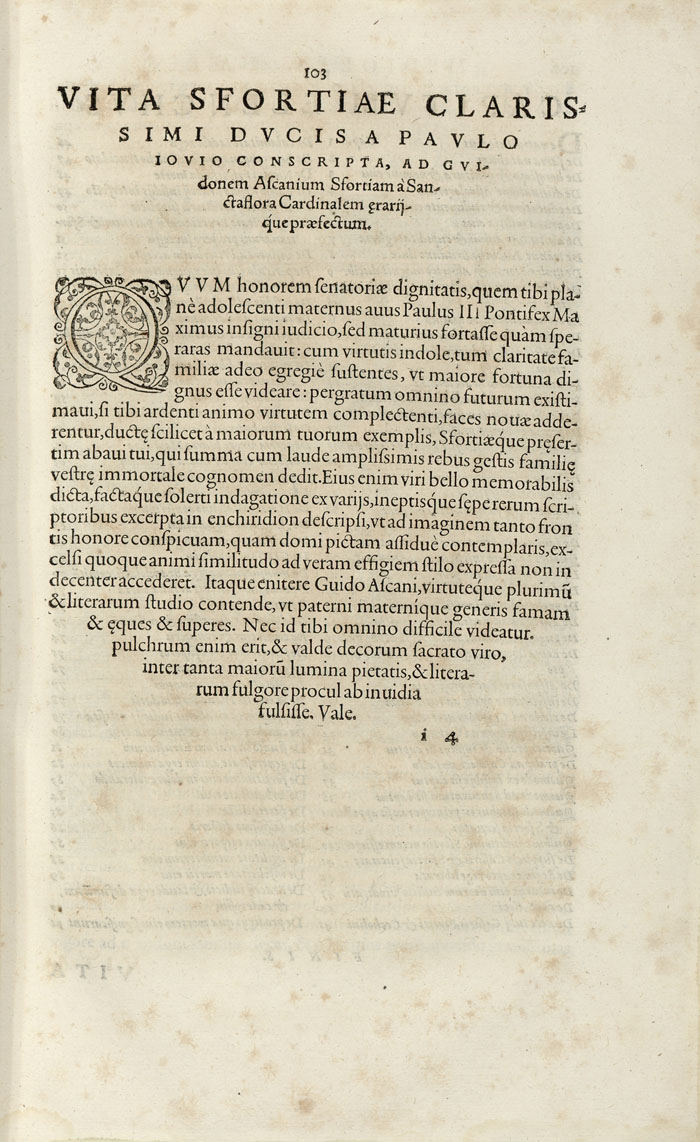 103
VITA SFORTIAE CLARIS-
SIMI DVCIS A PAVLO
IOVIO CONSCRIPTA, AD GVI-
donem Aſcanium Sfortiam à San-
ctaflora Cardinalem ęrarij-
q́ue præfectum.
QVVM honorem ſenatoriæ dignitatis, quem tibi pla-
nè adoleſcenti maternus auus Paulus III Pontifex Ma
ximus inſigni iudicio, ſed maturius fortaſſe quàm ſpe-
raras mandauit: cum virtutis indole, tum claritate fa-
miliæ adeo egregiè ſuſtentes, vt maiore fortuna di-
gnus eſſe videare: pergratum omnino futurum exiſti-
maui, ſi tibi ardenti animo virtutem complectenti, faces nouæ adde-
rentur, ductę ſcilicet à maiorum tuorum exemplis, Sfortiæque pręſer-
tim abaui tui, qui ſumma cum laude ampliſsimis rebus geſtis familię
veſtrę immortale cognomen dedit. Eius enim viri bello memorabilis
dicta, factaque ſolerti indagatione ex varijs, ineptisque ſępe rerum ſcri-
ptoribus excerpta in enchiridion deſcripſi, vt ad imaginem tanto fron
tis honore conſpicuam, quam domi pictam aſsiduè contemplaris, ex-
celſi quoque animi ſimilitudo ad veram effigiem ſtilo expreſſa non in
decenter accederet. Itaque enitere Guido Aſcani, virtuteque plurimū
& literarum ſtudio contende, vt paterni materníque generis famam
& ęques & ſuperes. Nec id tibi omnino difficile videatur.
pulchrum enim erit, & valde decorum ſacrato viro,
inter tanta maiorū lumina pietatis, & litera-
rum fulgore procul ab inuidia
fulſiſſe. Vale.
i 4